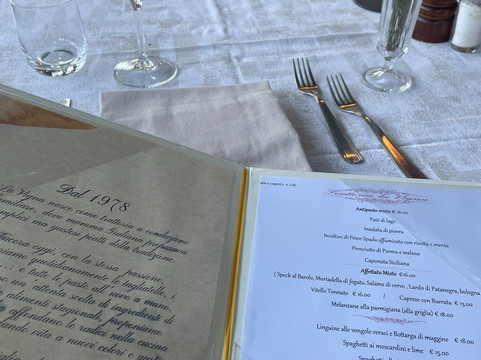 Dal 1978
La Vigna nasce come trattoria a conduzione
familiare, dove mamma Giuliana preparava
semplice ma gustosi piatti della tradizione.
Ancora oggi, con la stessa passione,
quotidianamente le tagliatelle, i
e tutte le paste all'uovo a mano,
un attenta scelta di ingredienti di
alimenti stagionali, proponiamo
affondano le radici nella cucina
dando vita a nuovi colori e
e coperto € 3.00
Antipasto misto € 18.00
Patè di lago
Insalata di piovra
Involtini di Pesce Spada affumicato con ricotta e menta
Prosciutto di Parma e melone
Caponata Siciliana
Affettato Misto €16.00
( Speck al Barolo, Mortadella di fegato, Salame di cervo , Lardo di Patanegra, bologna
Vitello Tonnato €16.00 / Caprese con Burrata € 15.00
Melanzane alla parmigiana (alla griglia) € 18.00
Linguine alle vongole veraci e Bottarga di muggine € 18.00
Spaghetti ai moscardini e lime € 15.00
Spaghetti